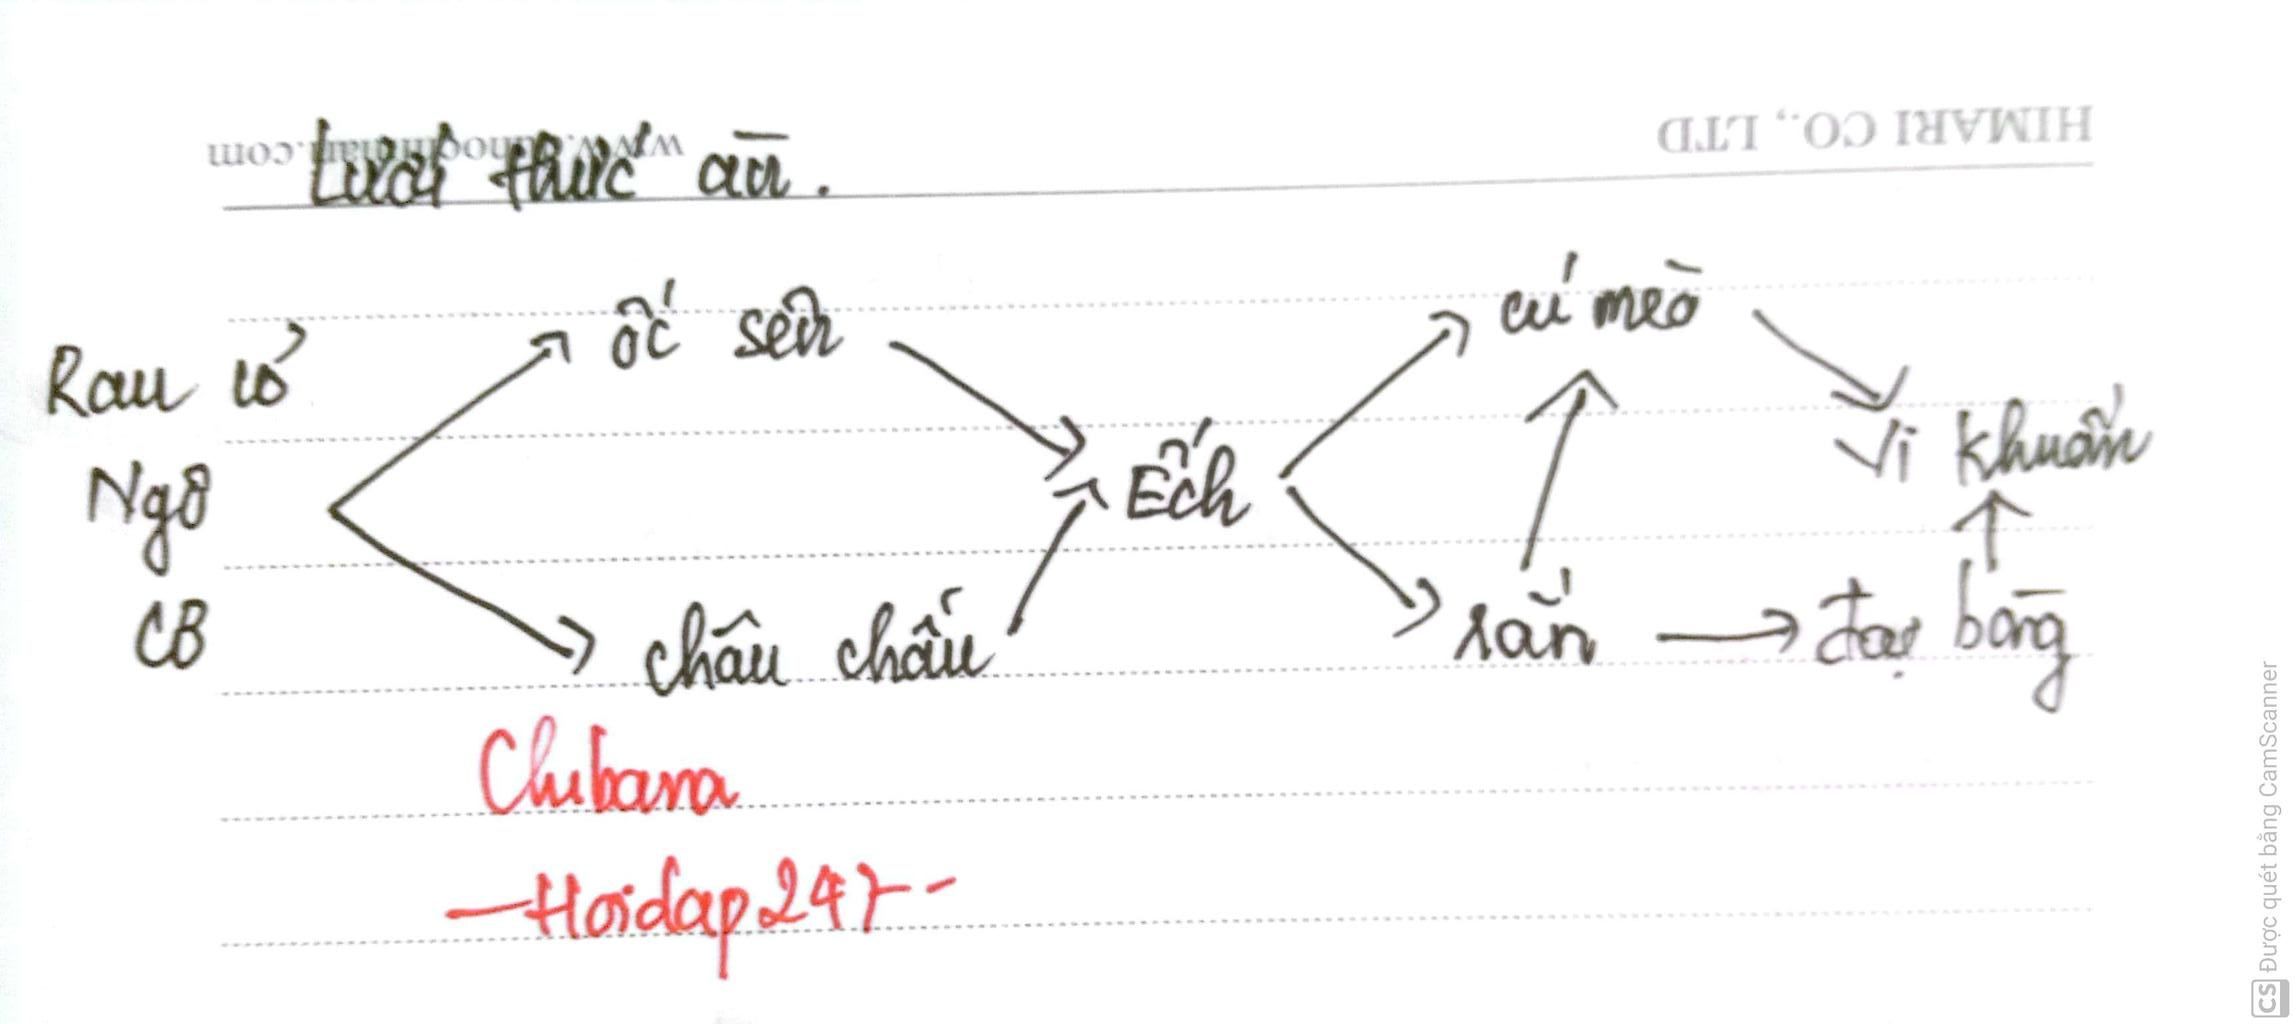 HIMARI CO., LTD
Lưới thức ăn.
ốc sên
cú mèo
Rau cỏ
Vi khuẩn
Ngô
Ếch
CB
châu chấu
rắn
đại bàng
Chibana
-Hoidap247-
CS Được quét bằng CamScanner